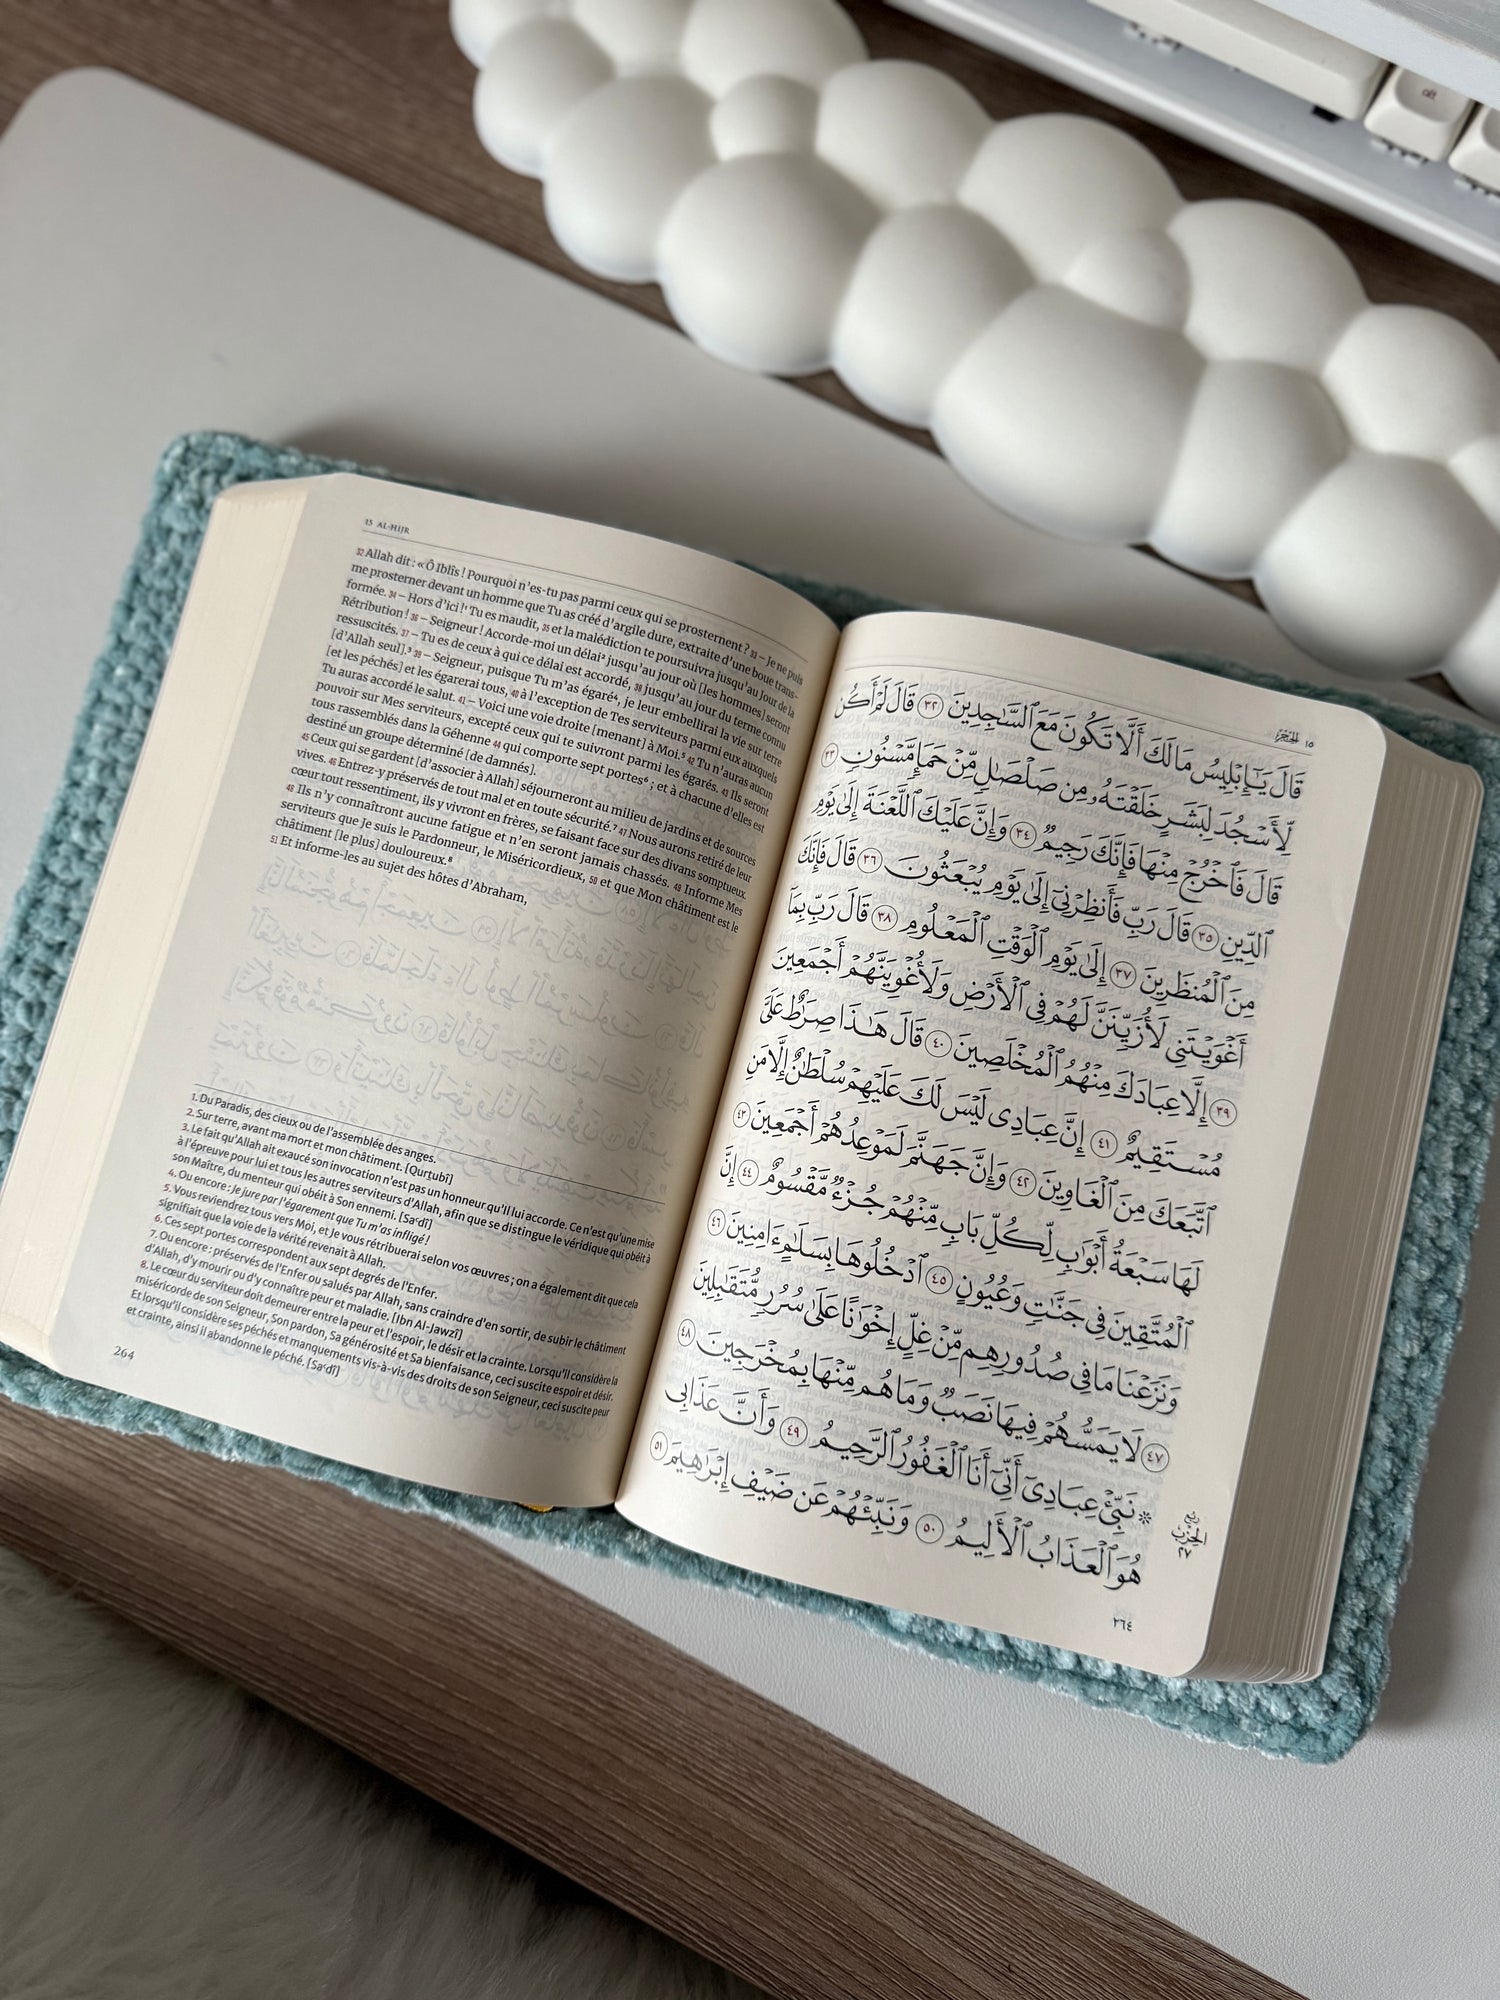 alt
15 AL-HIJR
32 Allah dit : « Ô Iblîs ! Pourquoi n'es-tu pas parmi ceux qui se prosternent ? 33 – Je ne puis
me prosterner devant un homme que Tu as créé d'argile dure, extraite d'une boue trans-
formée. 34 – Hors d'ici !¹ Tu es maudit, 35 et la malédiction te poursuivra jusqu'au Jour de la
Rétribution ! 36 – Seigneur ! Accorde-moi un délai² jusqu'au jour où [les hommes] seront
ressuscités. 37 – Tu es de ceux à qui ce délai est accordé, 38 jusqu'au jour du terme connu
[d'Allah seul].³ 39 – Seigneur, puisque Tu m'as égaré⁴, je leur embellirai la vie sur terre
[et les péchés] et les égarerai tous, 40 à l'exception de Tes serviteurs parmi eux auxquels
Tu auras accordé le salut. 41 – Voici une voie droite [menant] à Moi,⁵ 42 Tu n'auras aucun
pouvoir sur Mes serviteurs, excepté ceux qui te suivront parmi les égarés. 43 Ils seront
tous rassemblés dans la Géhenne 44 qui comporte sept portes⁶ ; et à chacune d'elles est
destiné un groupe déterminé [de damnés].
45 Ceux qui se gardent [d'associer à Allah] séjourneront au milieu de jardins et de sources
vives. 46 Entrez-y préservés de tout mal et en toute sécurité.⁷ 47 Nous aurons retiré de leur
cœur tout ressentiment, ils y vivront en frères, se faisant face sur des divans somptueux.
48 Ils n'y connaîtront aucune fatigue et n'en seront jamais chassés. 49 Informe Mes
serviteurs que Je suis le Pardonneur, le Miséricordieux, 50 et que Mon châtiment est le
châtiment [le plus] douloureux.⁸
51 Et informe-les au sujet des hôtes d'Abraham,
1. Du Paradis, des cieux ou de l'assemblée des anges.
2. Sur terre, avant ma mort et mon châtiment. [Qurtubî]
3. Le fait qu'Allah ait exaucé son invocation n'est pas un honneur qu'il lui accorde. Ce n'est qu'une mise
à l'épreuve pour lui et tous les autres serviteurs d'Allah, afin que se distingue le véridique qui obéit à
son Maître, du menteur qui obéit à Son ennemi. [Saʿdî]
4. Ou encore : Je jure par l'égarement que Tu m'as infligé !
5. Vous reviendrez tous vers Moi, et Je vous rétribuerai selon vos œuvres ; on a également dit que cela
signifiait que la voie de la vérité revenait à Allah.
6. Ces sept portes correspondent aux sept degrés de l'Enfer.
7. Ou encore : préservés de l'Enfer ou salués par Allah, sans craindre d'en sortir, de subir le châtiment
d'Allah, d'y mourir ou d'y connaître peur et maladie. [Ibn Al-Jawzî]
8. Le cœur du serviteur doit demeurer entre la peur et l'espoir, le désir et la crainte. Lorsqu'il considère la
miséricorde de son Seigneur, Son pardon, Sa générosité et Sa bienfaisance, ceci suscite espoir et désir.
Et lorsqu'il considère ses péchés et manquements vis-à-vis des droits de son Seigneur, ceci suscite peur
et crainte, ainsi il abandonne le péché. [Saʿdî]
264
١٥ الحجر
قَالَ يَٰٓإِبْلِيسُ مَا لَكَ أَلَّا تَكُونَ مَعَ ٱلسَّٰجِدِينَ ٣٢ قَالَ لَمْ أَكُن
لِّأَسْجُدَ لِبَشَرٍ خَلَقْتَهُۥ مِن صَلْصَٰلٍ مِّنْ حَمَإٍ مَّسْنُونٍ ٣٣
قَالَ فَٱخْرُجْ مِنْهَا فَإِنَّكَ رَجِيمٌ ٣٤ وَإِنَّ عَلَيْكَ ٱللَّعْنَةَ إِلَىٰ يَوْمِ
ٱلدِّينِ ٣٥ قَالَ رَبِّ فَأَنظِرْنِىٓ إِلَىٰ يَوْمِ يُبْعَثُونَ ٣٦ قَالَ فَإِنَّكَ
مِنَ ٱلْمُنظَرِينَ ٣٧ إِلَىٰ يَوْمِ ٱلْوَقْتِ ٱلْمَعْلُومِ ٣٨ قَالَ رَبِّ بِمَآ
أَغْوَيْتَنِى لَأُزَيِّنَنَّ لَهُمْ فِى ٱلْأَرْضِ وَلَأُغْوِيَنَّهُمْ أَجْمَعِينَ
٣٩ إِلَّا عِبَادَكَ مِنْهُمُ ٱلْمُخْلَصِينَ ٤٠ قَالَ هَٰذَا صِرَٰطٌ عَلَىَّ
مُسْتَقِيمٌ ٤١ إِنَّ عِبَادِى لَيْسَ لَكَ عَلَيْهِمْ سُلْطَٰنٌ إِلَّا مَنِ
ٱتَّبَعَكَ مِنَ ٱلْغَاوِينَ ٤٢ وَإِنَّ جَهَنَّمَ لَمَوْعِدُهُمْ أَجْمَعِينَ ٤٣
لَهَا سَبْعَةُ أَبْوَٰبٍ لِّكُلِّ بَابٍ مِّنْهُمْ جُزْءٌ مَّقْسُومٌ ٤٤ إِنَّ
ٱلْمُتَّقِينَ فِى جَنَّٰتٍ وَعُيُونٍ ٤٥ ٱدْخُلُوهَا بِسَلَٰمٍ ءَامِنِينَ ٤٦
وَنَزَعْنَا مَا فِى صُدُورِهِم مِّنْ غِلٍّ إِخْوَٰنًا عَلَىٰ سُرُرٍ مُّتَقَٰبِلِينَ
٤٧ لَا يَمَسُّهُمْ فِيهَا نَصَبٌ وَمَا هُم مِّنْهَا بِمُخْرَجِينَ ٤٨
* نَبِّئْ عِبَادِىٓ أَنِّىٓ أَنَا ٱلْغَفُورُ ٱلرَّحِيمُ ٤٩ وَأَنَّ عَذَابِى
هُوَ ٱلْعَذَابُ ٱلْأَلِيمُ ٥٠ وَنَبِّئْهُمْ عَن ضَيْفِ إِبْرَٰهِيمَ ٥١
ربع
الحزب
٢٧
٢٦٤